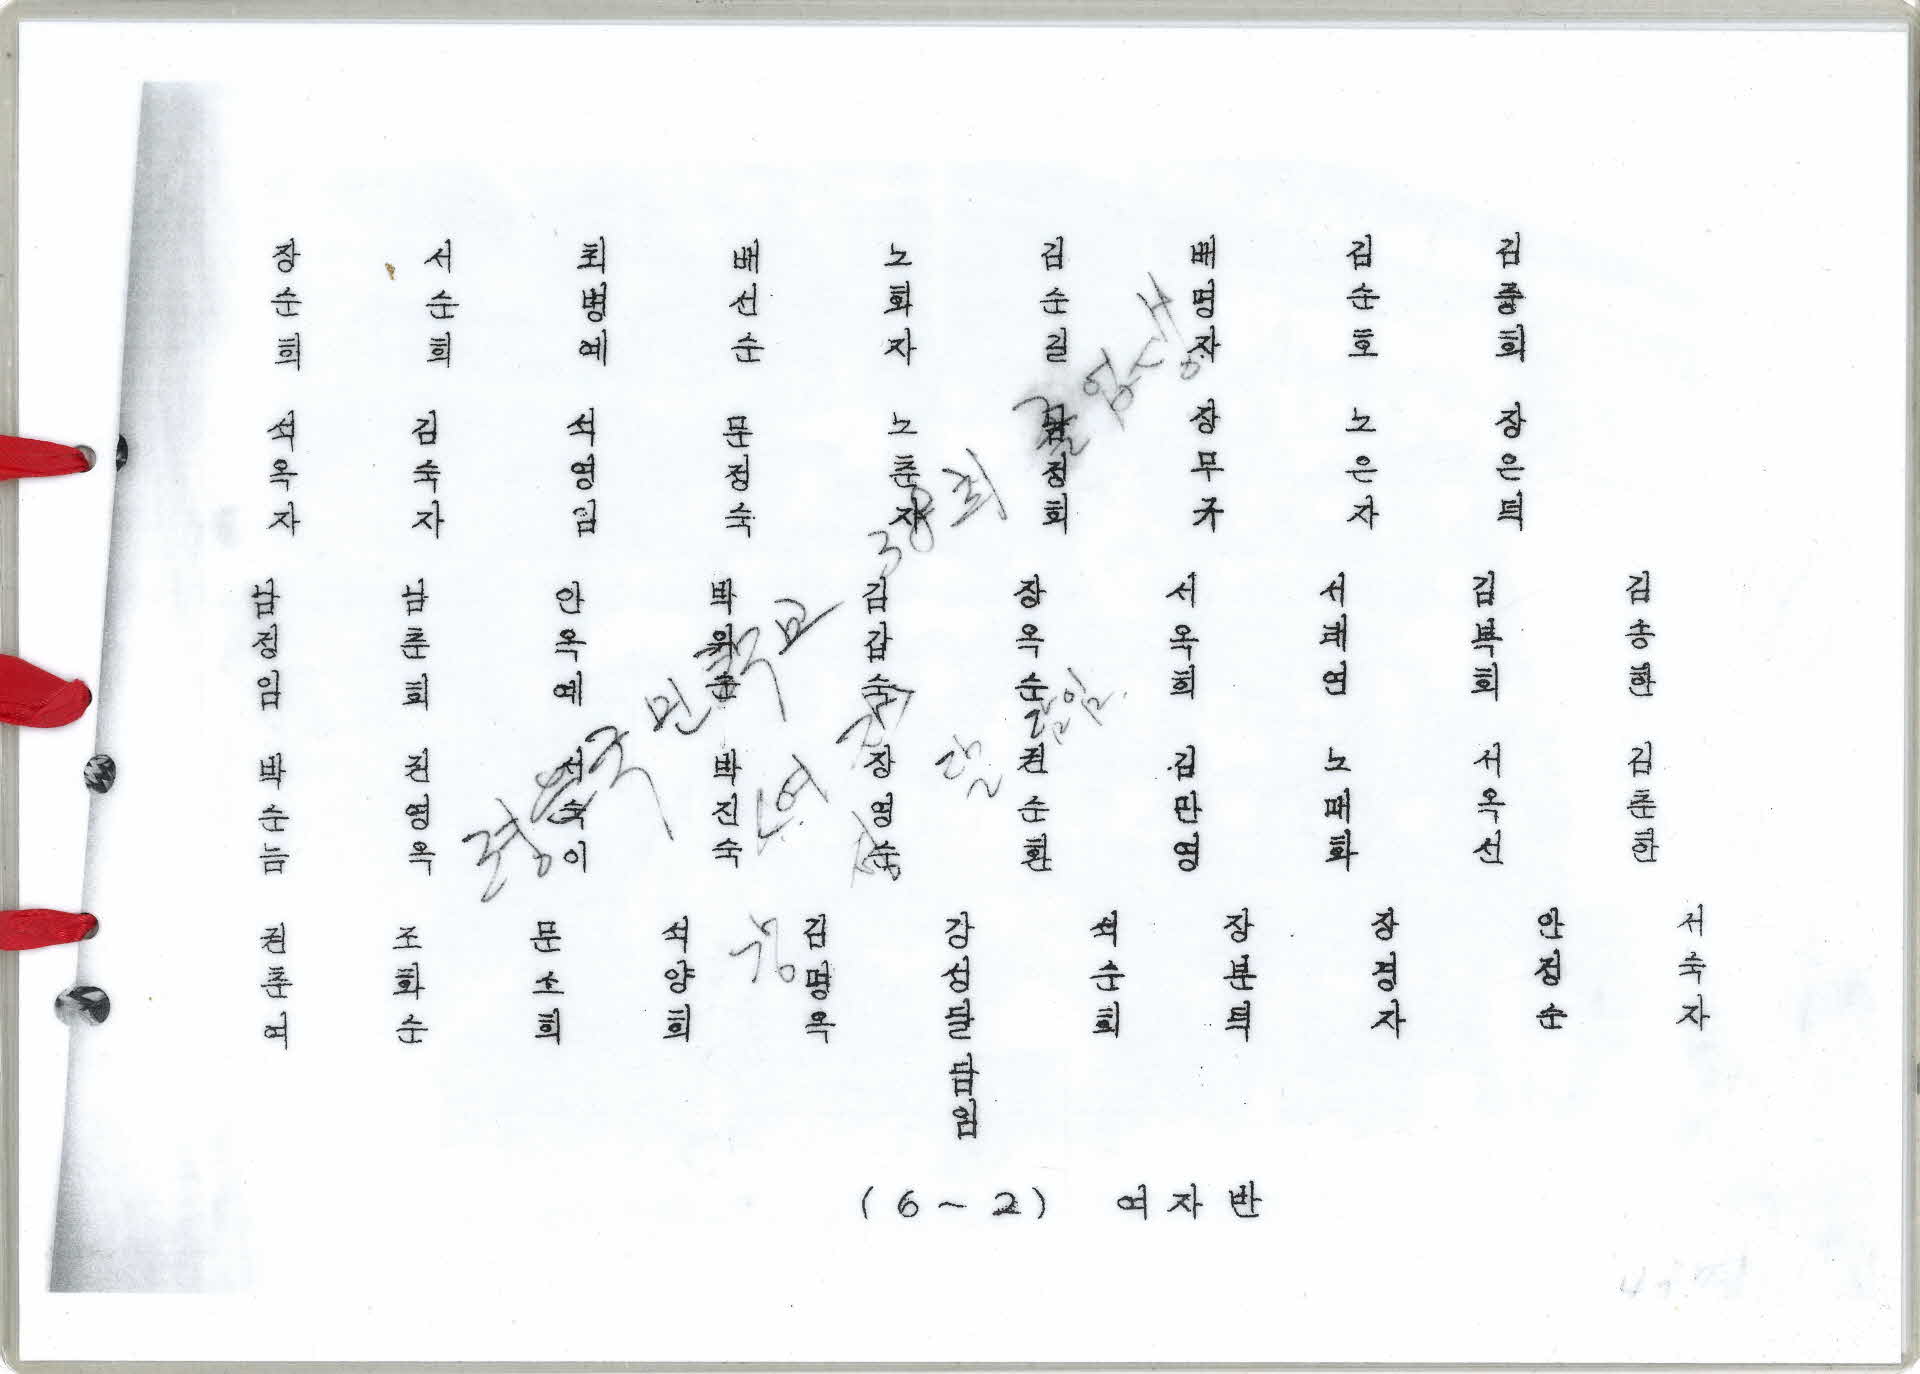 장순희 서순희 최명예 배선순 노화자 김순길 배명자 김순호 김중희
석옥자 김숙자 석영림 문정숙 노춘자 김정희 장무규 노은자 장은득
남정임 남춘희 안옥예 박위순 김갑숙 장옥순 서옥희 서패연 김복희 김송한
박순늠 전영옥 서숙이 박진숙 장영숙 전순환 김만영 노매화 서옥선 김춘한
전춘여 조화순 문소희 석양희 김명옥 강성달담임 석순희 장분득 장경자 안정순 서죽자
(6~2) 여자반
국민학교 38회 졸업생